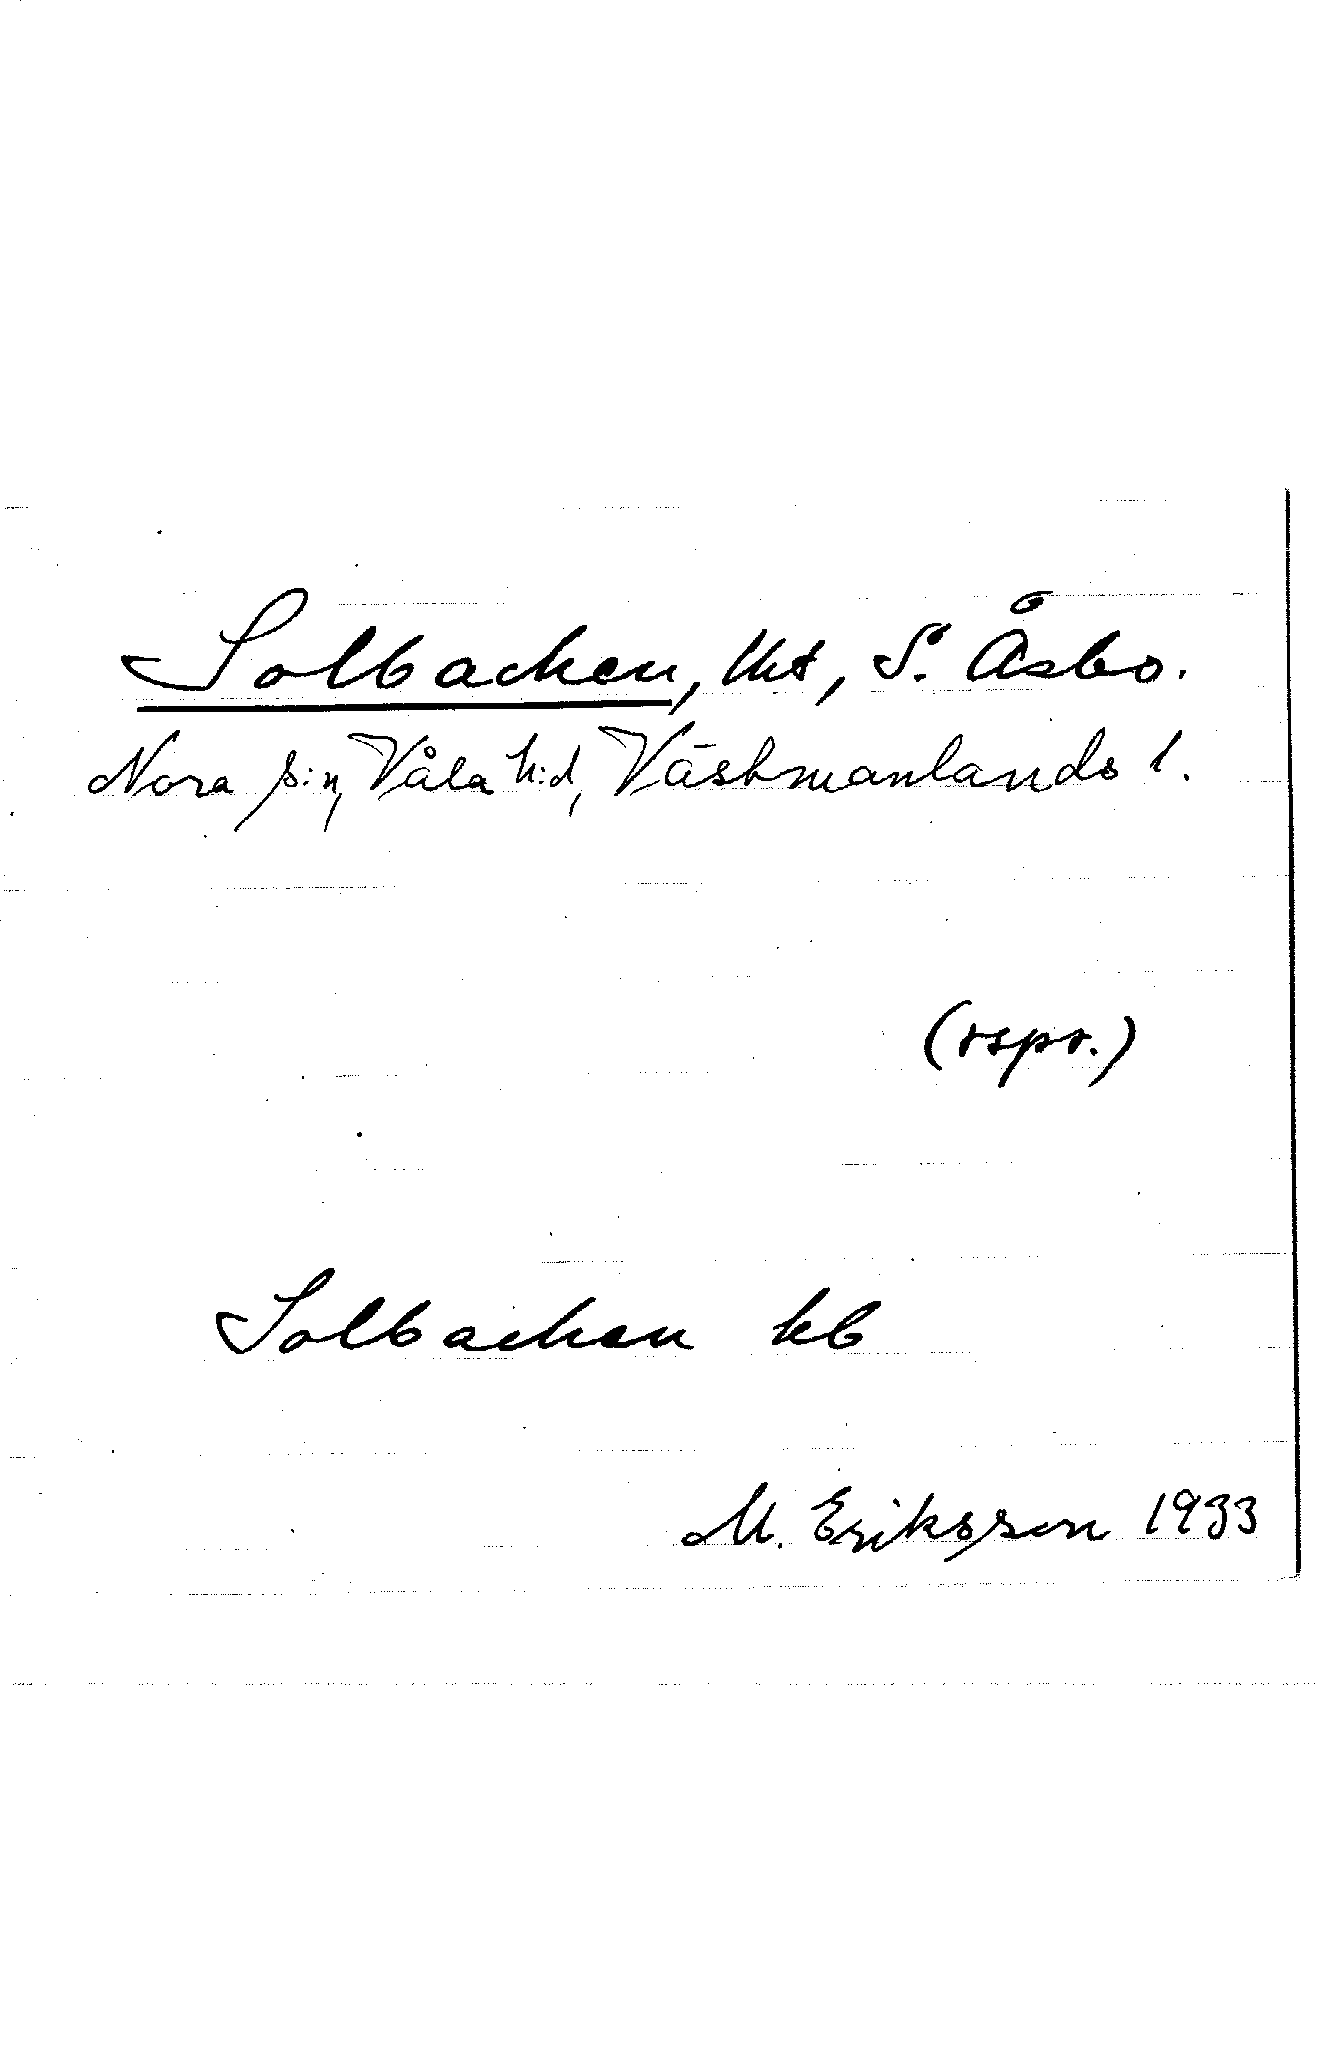 Solbacken, lht, S. Åsbo.
Nora s:n, Våla h:d, Västmanlands l.
(rspr.)
Solbacken kb
M. Eriksson 1933